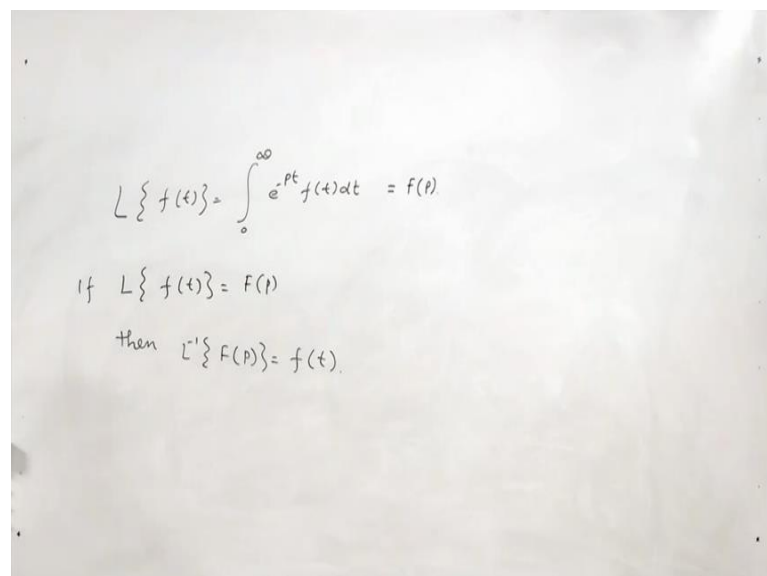 L{f(t)} = ∫₀^∞ e^{-pt} f(t)dt = f(p).
If L{f(t)} = F(p)
then L⁻¹{F(p)} = f(t).